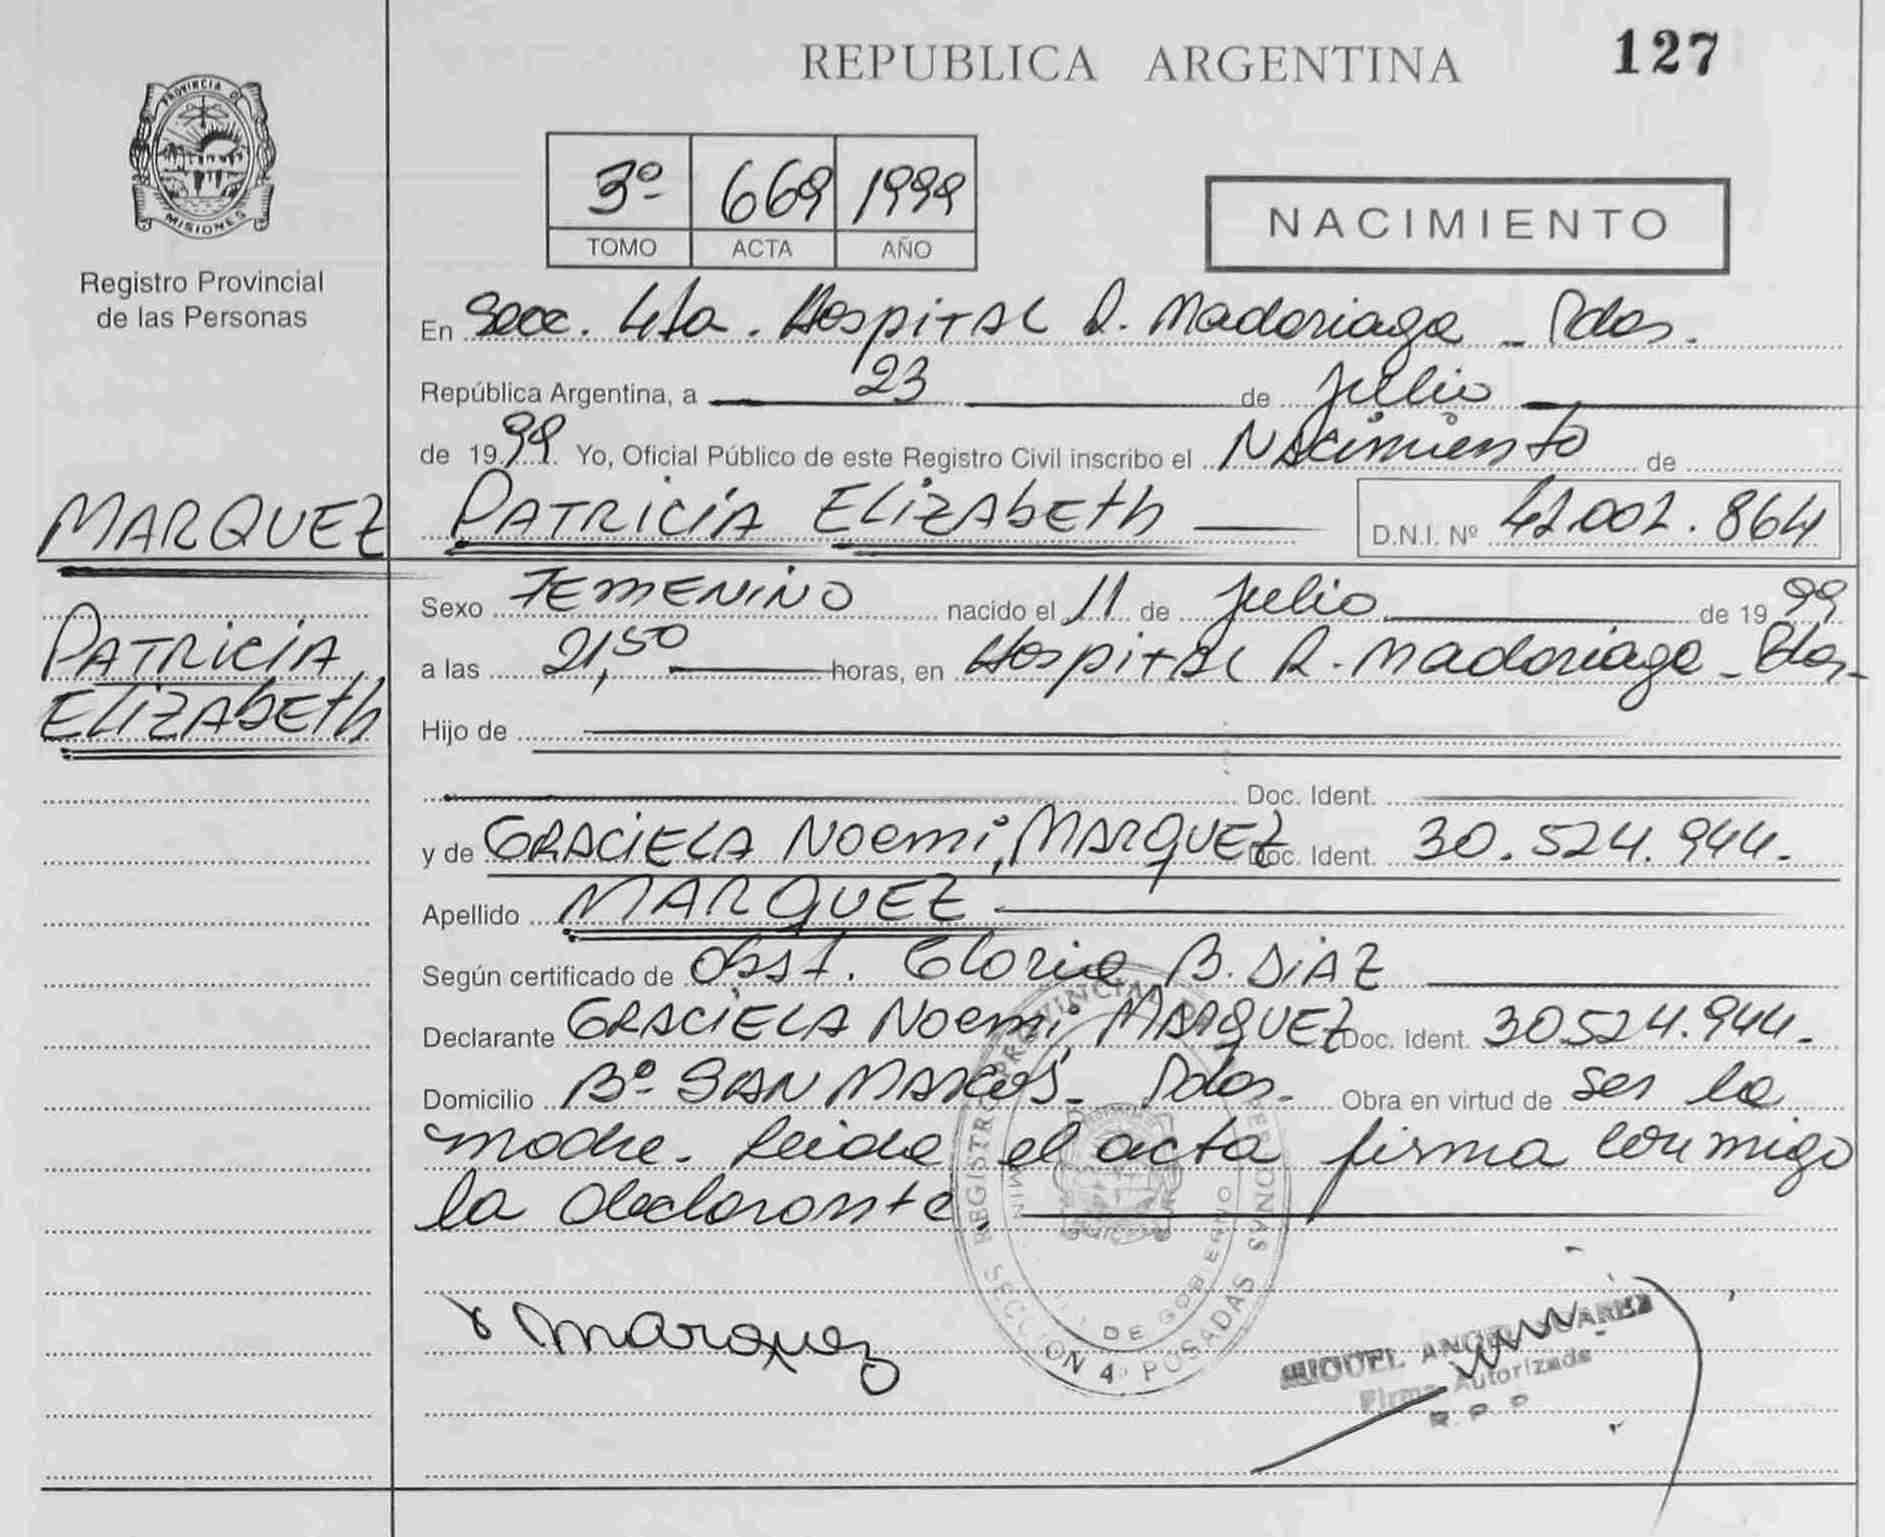 REPUBLICA ARGENTINA 127
PROVINCIA DE
MISIONES
Registro Provincial
de las Personas
3º 669 1999
TOMO ACTA AÑO
NACIMIENTO
En Secc. 4ta. Hospital R. Madariaga - Pdas.
República Argentina, a 23 de Julio
de 1999 Yo, Oficial Público de este Registro Civil inscribo el Nacimiento de
MARQUEZ
PATRICIA ELIZABETH D.N.I. Nº 42.002.864
PATRICIA
ELIZABETH
Sexo FEMENINO nacido el 11 de Julio de 1999
a las 21,50 horas, en Hospital R. Madariaga - Pdas.
Hijo de
Doc. Ident.
y de GRACIELA NOEMI, MARQUEZ Doc. Ident. 30.524.944.
Apellido MARQUEZ
Según certificado de Obst. Gloria B. DIAZ
Declarante GRACIELA NOEMI, MARQUEZ Doc. Ident. 30.524.944.
Domicilio Bº SAN MARCOS - Pdas. Obra en virtud de ser la
madre. Leida el acta firma conmigo
la declarante.
Marquez
REGISTRO PROVINCIAL DE PERSONAS
DE GOBIERNO
SECCION 4º POSADAS
MIGUEL ANGEL SUAREZ
Firma Autorizada
R. P. P